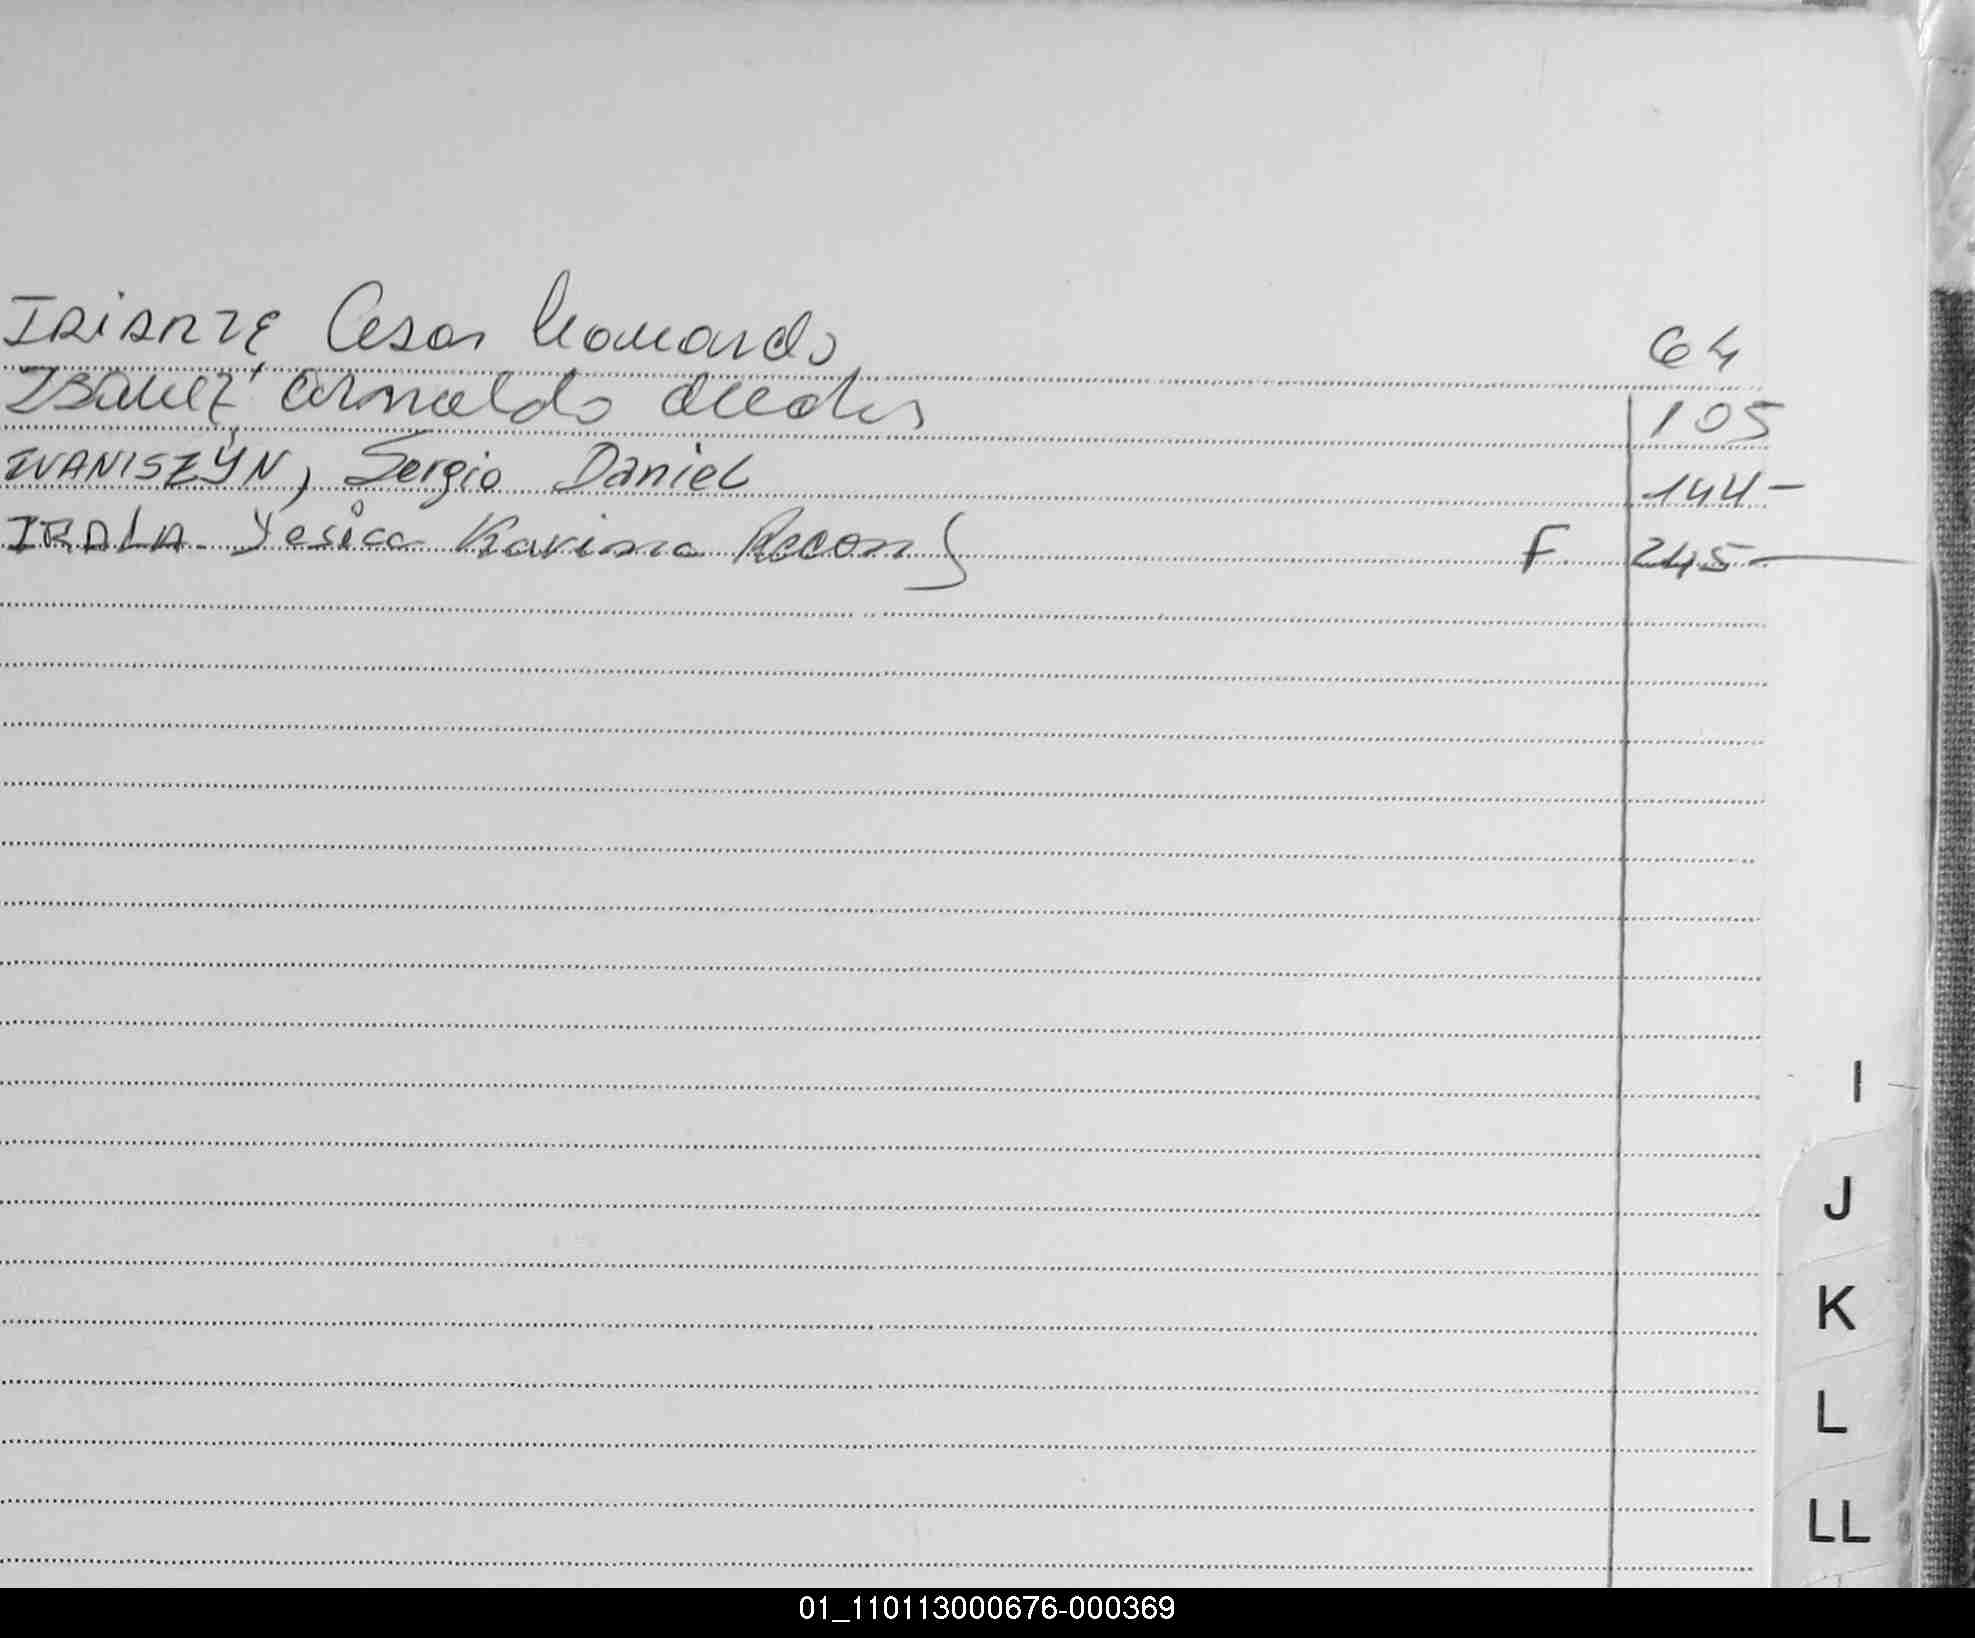 IRIARTE Cesar Leonardo 64
Ibañez, Arnaldo 105
IVANISZYN, Sergio Daniel 144-
IRALA Yesica Karina Recon F 245
I
J
K
L
LL
01_110113000676-000369